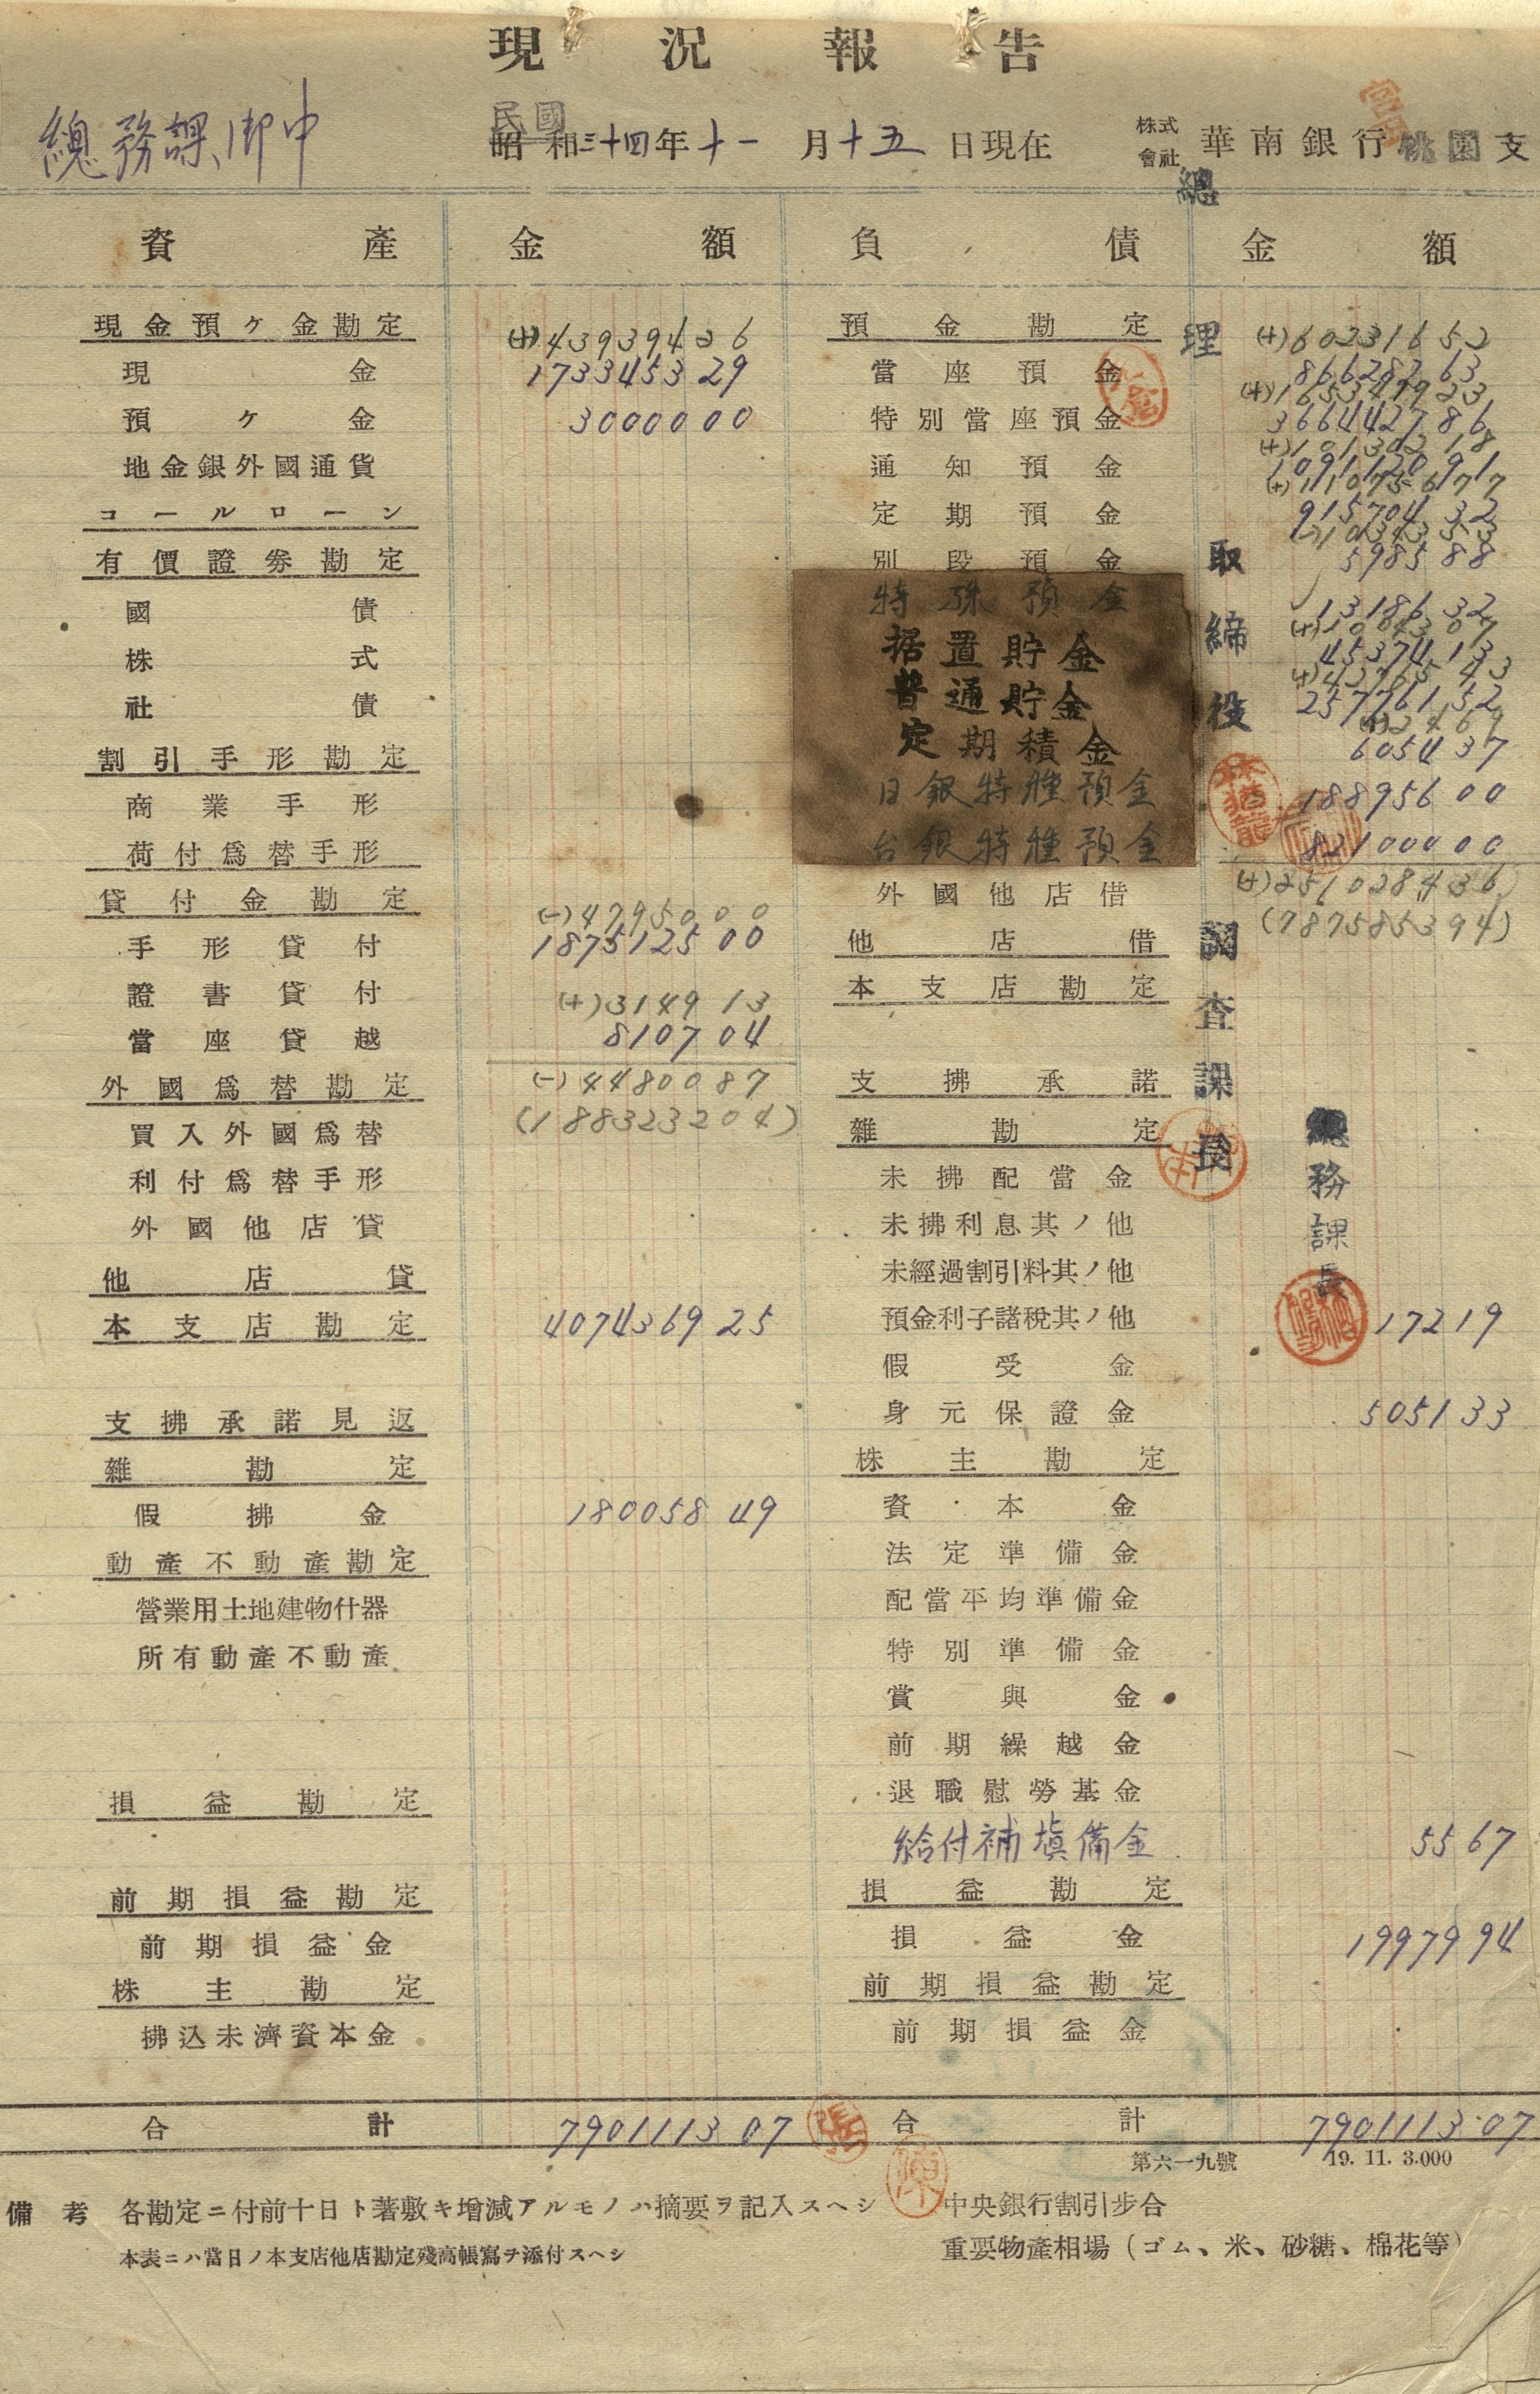 現況報告
總務課御中
民國
昭和三十四年十一月十五日現在
株式會社 華南銀行桃園支
資產 金額 負債 金額
現金預ケ金勘定 (+)43939426
現金 1733453 29
預ケ金 30000 00
地金銀外國通貨
コールローン
有價證券勘定
國債
株式
社債
割引手形勘定
商業手形
荷付爲替手形
貸付金勘定 (-)4795000
手形貸付 1875125 00
證書貸付 (+)3149 13
當座貸越 8107 04
(-)4480087
(188323204)
外國爲替勘定
買入外國爲替
利付爲替手形
外國他店貸
他店貸
本支店勘定 4074369 25
支拂承諾見返
雜勘定
假拂金 180058 49
動產不動產勘定
營業用土地建物什器
所有動產不動產
損益勘定
前期損益勘定
前期損益金
株主勘定
拂込未濟資本金
合計 7901113 07
預金勘定 (+)60231652
當座預金 866287 63
特別當座預金 3664427 86
(+)101302 18
通知預金 1091120 91
定期預金 915704 32
別段預金 5985 88
特殊預金 13186 32
(+)10043 07
据置貯金 45374 13
普通貯金 257761 52
定期積金 6054 37
日銀特種預金 188956 00
台銀特種預金 821000 00
(+)251028436
(787585394)
外國他店借
他店借
本支店勘定
支拂承諾
雜勘定
未拂配當金
未拂利息其ノ他
未經過割引料其ノ他
預金利子諸稅其ノ他 172 19
假受金
身元保證金 5051 33
株主勘定
資本金
法定準備金
配當平均準備金
特別準備金
賞與金
前期繰越金
退職慰勞基金
給付補塡備金 55 67
損益勘定
損益金 19979 94
前期損益勘定
前期損益金
合計 7901113 07
總理
取締役
調查課長
總務課長
林猶龍
第六一九號 19. 11. 3.000
備考 各勘定ニ付前十日ト著敷キ增減アルモノハ摘要ヲ記入スヘシ
本表ニハ當日ノ本支店他店勘定殘高帳寫ヲ添付スヘシ
中央銀行割引步合
重要物產相場（ゴム、米、砂糖、棉花等）
陳